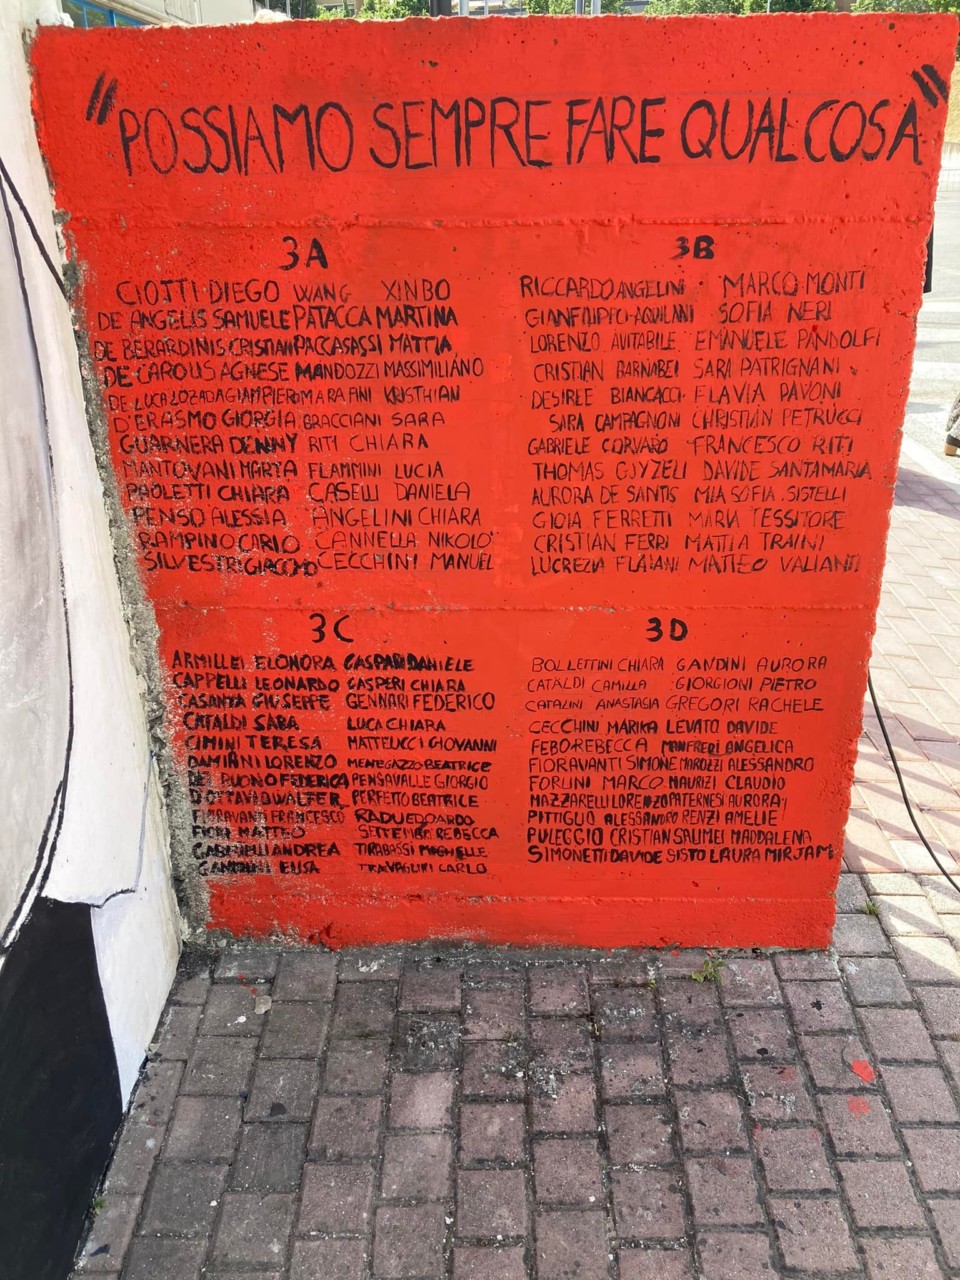 "POSSIAMO SEMPRE FARE QUALCOSA"
3A
CIOTTI DIEGO WANG XINBO
DE ANGELIS SAMUELE PATACCA MARTINA
DE BERARDINIS CRISTIAN PACCASASSI MATTIA
DE CAROLIS AGNESE MANDOZZI MASSIMILIANO
DE LUCA LOZADA GIAMPIERO MARAFINI KRISTHIAN
D'ERASMO GIORGIA BRACCIANI SARA
GUARNERA DENNY RITI CHIARA
MANTOVANI MARTA FLAMMINI LUCIA
PAOLETTI CHIARA CASELLI DANIELA
PENSO ALESSIA ANGELINI CHIARA
RAMPINO CARLO CANNELLA NIKOLO'
SILVESTRI GIACOMO CECCHINI MANUEL
3B
RICCARDO ANGELINI MARCO MONTI
GIANFILIPPO AQUILANI SOFIA NERI
LORENZO AVITABILE EMANUELE PANDOLFI
CRISTIAN BARNABEI SARA PATRIGNANI
DESIREE BIANCACCI FLAVIA PAVONI
SARA CAMPAGNONI CHRISTIAN PETRUCCI
GABRIELE CORVARO FRANCESCO RITI
THOMAS GJYZELI DAVIDE SANTAMARIA
AURORA DE SANTIS MIA SOFIA SISTELLI
GIOIA FERRETTI MARIA TESSITORE
CRISTIAN FERRI MATTIA TRAINI
LUCREZIA FLAIANI MATTEO VALIANTI
3C
ARMILLEI ELONORA GASPARI DANIELE
CAPPELLI LEONARDO GASPERI CHIARA
CASANTA GIUSEPPE GENNARI FEDERICO
CATALDI SABA LUCA CHIARA
CIMINI TERESA MATTEUCCI GIOVANNI
DAMIANI LORENZO MENEGAZZO BEATRICE
DEL BUONO FEDERICA PENSAVALLE GIORGIO
D'OTTAVIO WALTER PERFETTO BEATRICE
FIORAVANTI FRANCESCO RADU EDOARDO
FIORI MATTEO SETTEMBRI REBECCA
GABRIELLI ANDREA TIRABASSI MICHELLE
GANDINI ELISA TRAVAGLINI CARLO
3D
BOLLETTINI CHIARA GANDINI AURORA
CATALDI CAMILLA GIORGIONI PIETRO
CATALINI ANASTASIA GREGORI RACHELE
CECCHINI MARIKA LEVATO DAVIDE
FEBO REBECCA MANFREDI ANGELICA
FIORAVANTI SIMONE MAROZZI ALESSANDRO
FORLINI MARCO MAURIZI CLAUDIO
MAZZARELLI LORENZO PATERNESI AURORA
PITTIGLIO ALESSANDRO RENZI AMELIE
PULEGGIO CRISTIAN SALIMEI MADDALENA
SIMONETTI DAVIDE SISTO LAURA MIRJAM